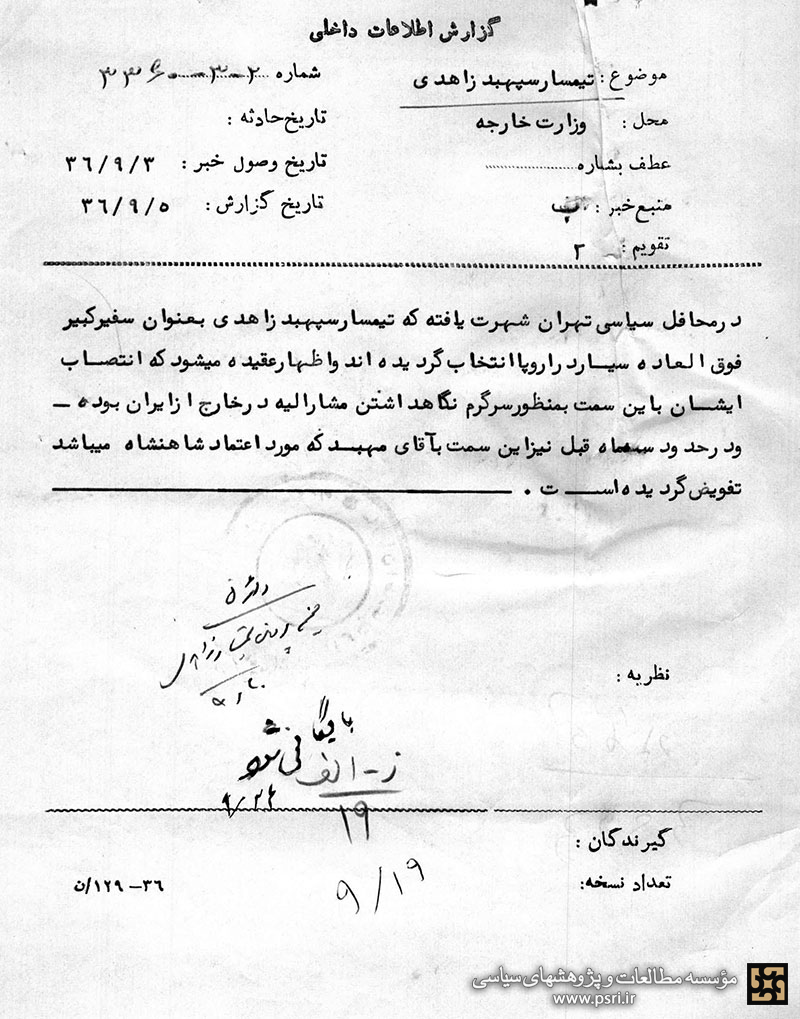 گزارش اطلاعات داخلی
موضوع : تیمسار سپهبد زاهدی
شماره
محل : وزارت خارجه
تاریخ حادثه :
عطف بشماره
تاریخ وصول خبر : ۳۶/۹/۳
منبع خبر : ب
تاریخ گزارش : ۳۶/۹/۵
تقویم : ۲
در محافل سیاسی تهران شهرت یافته که تیمسار سپهبد زاهدی بعنوان سفیر کبیر
فوق العاده سیار در اروپا انتخاب گردیده اند و اظهار عقیده میشود که انتصاب
ایشان باین سمت بمنظور سرگرم نگاهداشتن مشارالیه در خارج از ایران بوده ـ
و در حدود سه ماه قبل نیز این سمت بآقای مهبد که مورد اعتماد شاهنشاه میباشد
تفویض گردیده است .
نظریه :
بایگانی شود
ز - الف
۱۹
۹/۲۴
گیرندگان :
تعداد نسخه:
۹/۱۹
۳۶- ۱۲۹/ن
مؤسسه مطالعات و پژوهشهای سیاسی
www.psri.ir